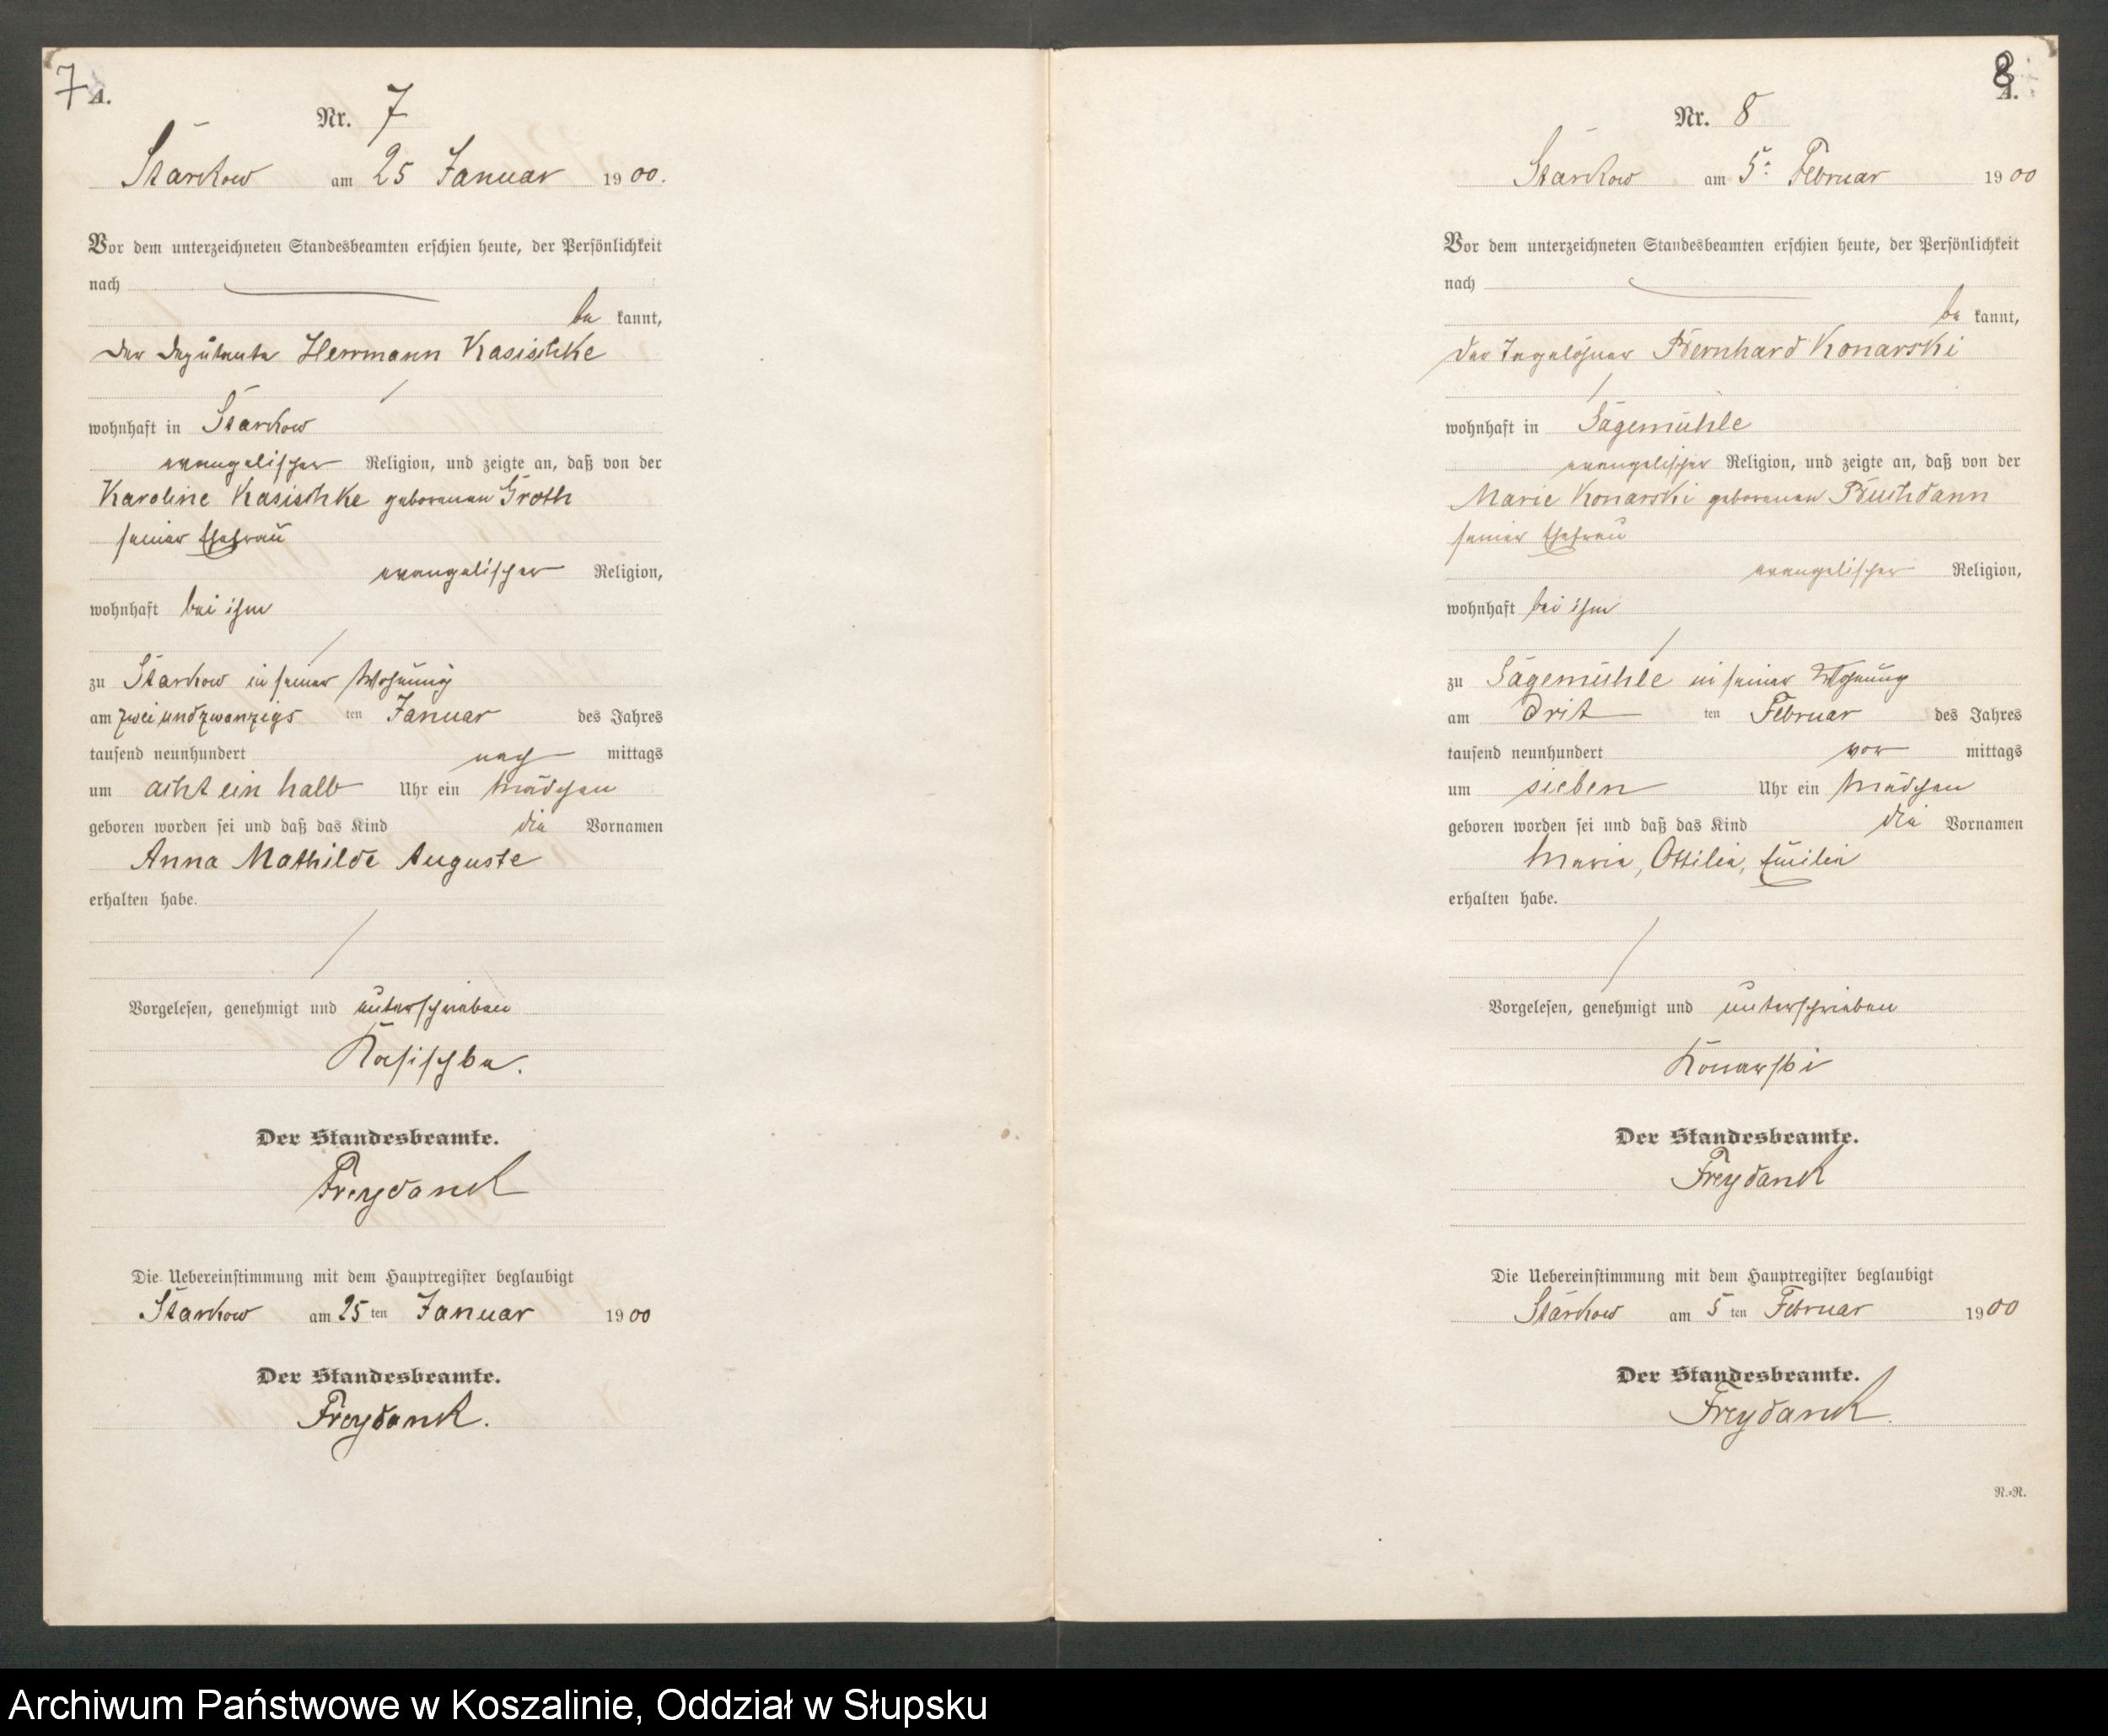 7
A.
Nr. 7
Starkow am 25 Januar 1900.
Vor dem unterzeichneten Standesbeamten erschien heute, der Persönlichkeit
nach
be kannt,
der Deputante Herrmann Kasischke
wohnhaft in Starkow
evangelischer Religion, und zeigte an, daß von der
Karoline Kasischke geborenen Groth
seiner Ehefrau
evangelischer Religion,
wohnhaft bei ihm
zu Starkow in seiner Wohnung
am zwei und zwanzigs ten Januar des Jahres
tausend neunhundert nach mittags
um acht ein halb Uhr ein Mädchen
geboren worden sei und daß das Kind die Vornamen
Anna Mathilde Auguste
erhalten habe.
Vorgelesen, genehmigt und unterschrieben
Kasischke.
Der Standesbeamte.
Freydank
Die Uebereinstimmung mit dem Hauptregister beglaubigt
Starkow am 25 ten Januar 1900
Der Standesbeamte.
Freydank.
8
A.
Nr. 8
Starkow am 5. Februar 1900
Vor dem unterzeichneten Standesbeamten erschien heute, der Persönlichkeit
nach
be kannt,
der Tagelöhner Bernhard Konarski
wohnhaft in Sägemühle
evangelischer Religion, und zeigte an, daß von der
Marie Konarski geborenen Buchdann
seiner Ehefrau
evangelischer Religion,
wohnhaft bei ihm
zu Sägemühle in seiner Wohnung
am drit ten Februar des Jahres
tausend neunhundert vor mittags
um sieben Uhr ein Mädchen
geboren worden sei und daß das Kind die Vornamen
Marie, Ottilie, Emilie
erhalten habe.
Vorgelesen, genehmigt und unterschrieben
Konarski
Der Standesbeamte.
Freydank
Die Uebereinstimmung mit dem Hauptregister beglaubigt
Starkow am 5 ten Februar 1900
Der Standesbeamte.
Freydank.
R.-R.
Archiwum Państwowe w Koszalinie, Oddział w Słupsku